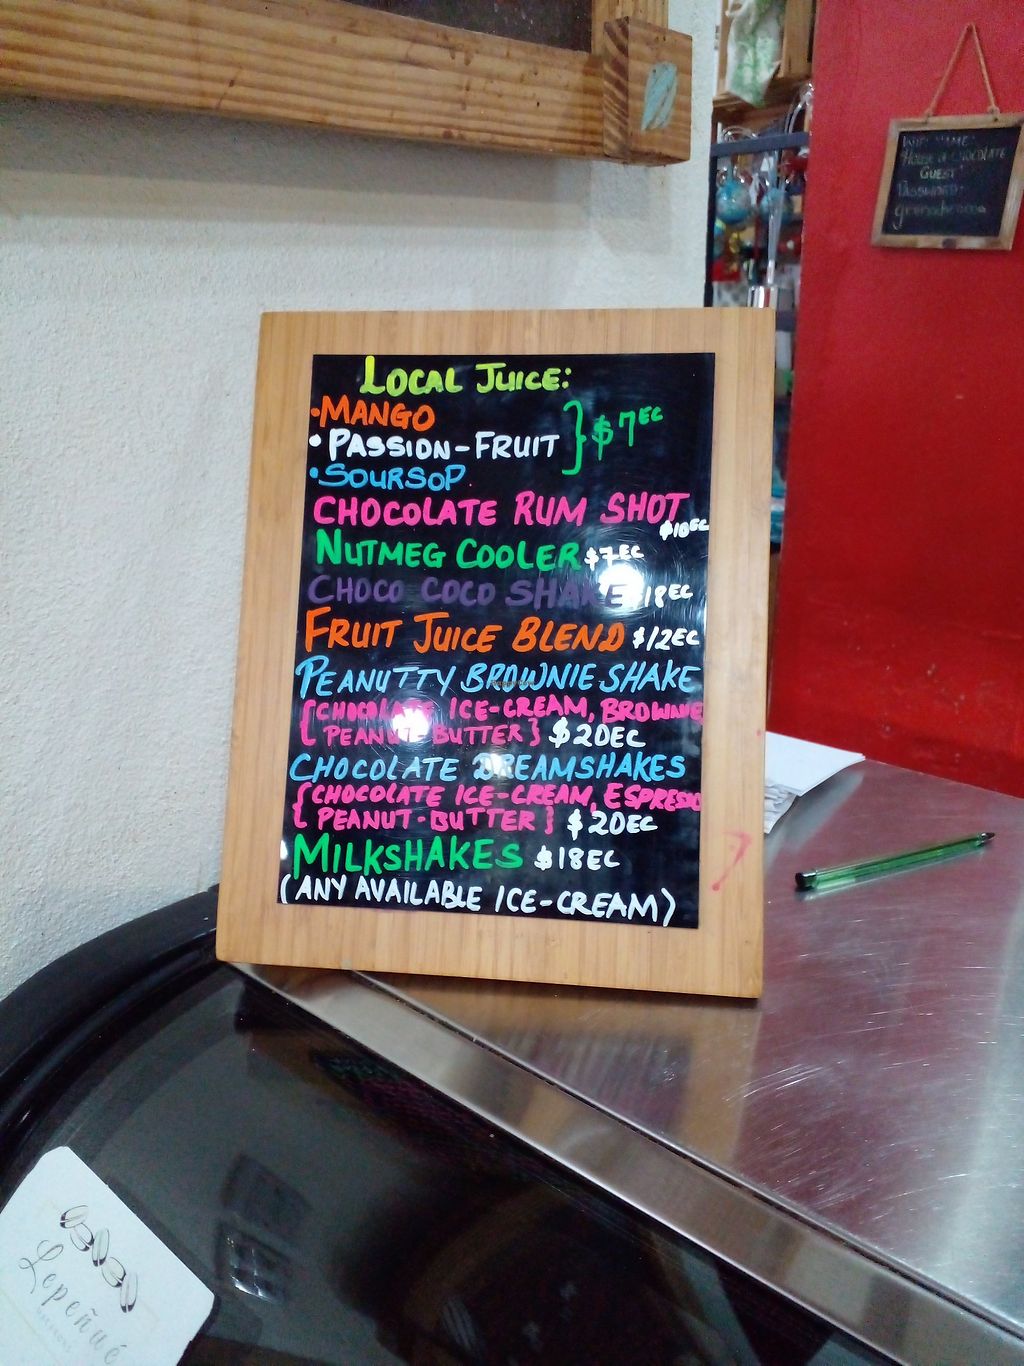 LOCAL JUICE:
•MANGO
• PASSION-FRUIT } $7EC
•SOURSOP
CHOCOLATE RUM SHOT
$10EC
NUTMEG COOLER $7EC
CHOCO COCO SHAKE 18EC
FRUIT JUICE BLEND $12EC
PEANUTTY BROWNIE SHAKE
{CHOCOLATE ICE-CREAM, BROWNIE
PEANUT BUTTER} $20EC
CHOCOLATE DREAMSHAKES
{CHOCOLATE ICE-CREAM, ESPRESSO
PEANUT-BUTTER} $20EC
MILKSHAKES $18EC
(ANY AVAILABLE ICE-CREAM)
WIFI NAME:
"HOUSE of CHOCOLATE
GUEST"
PASSWORD:
Lepeñué